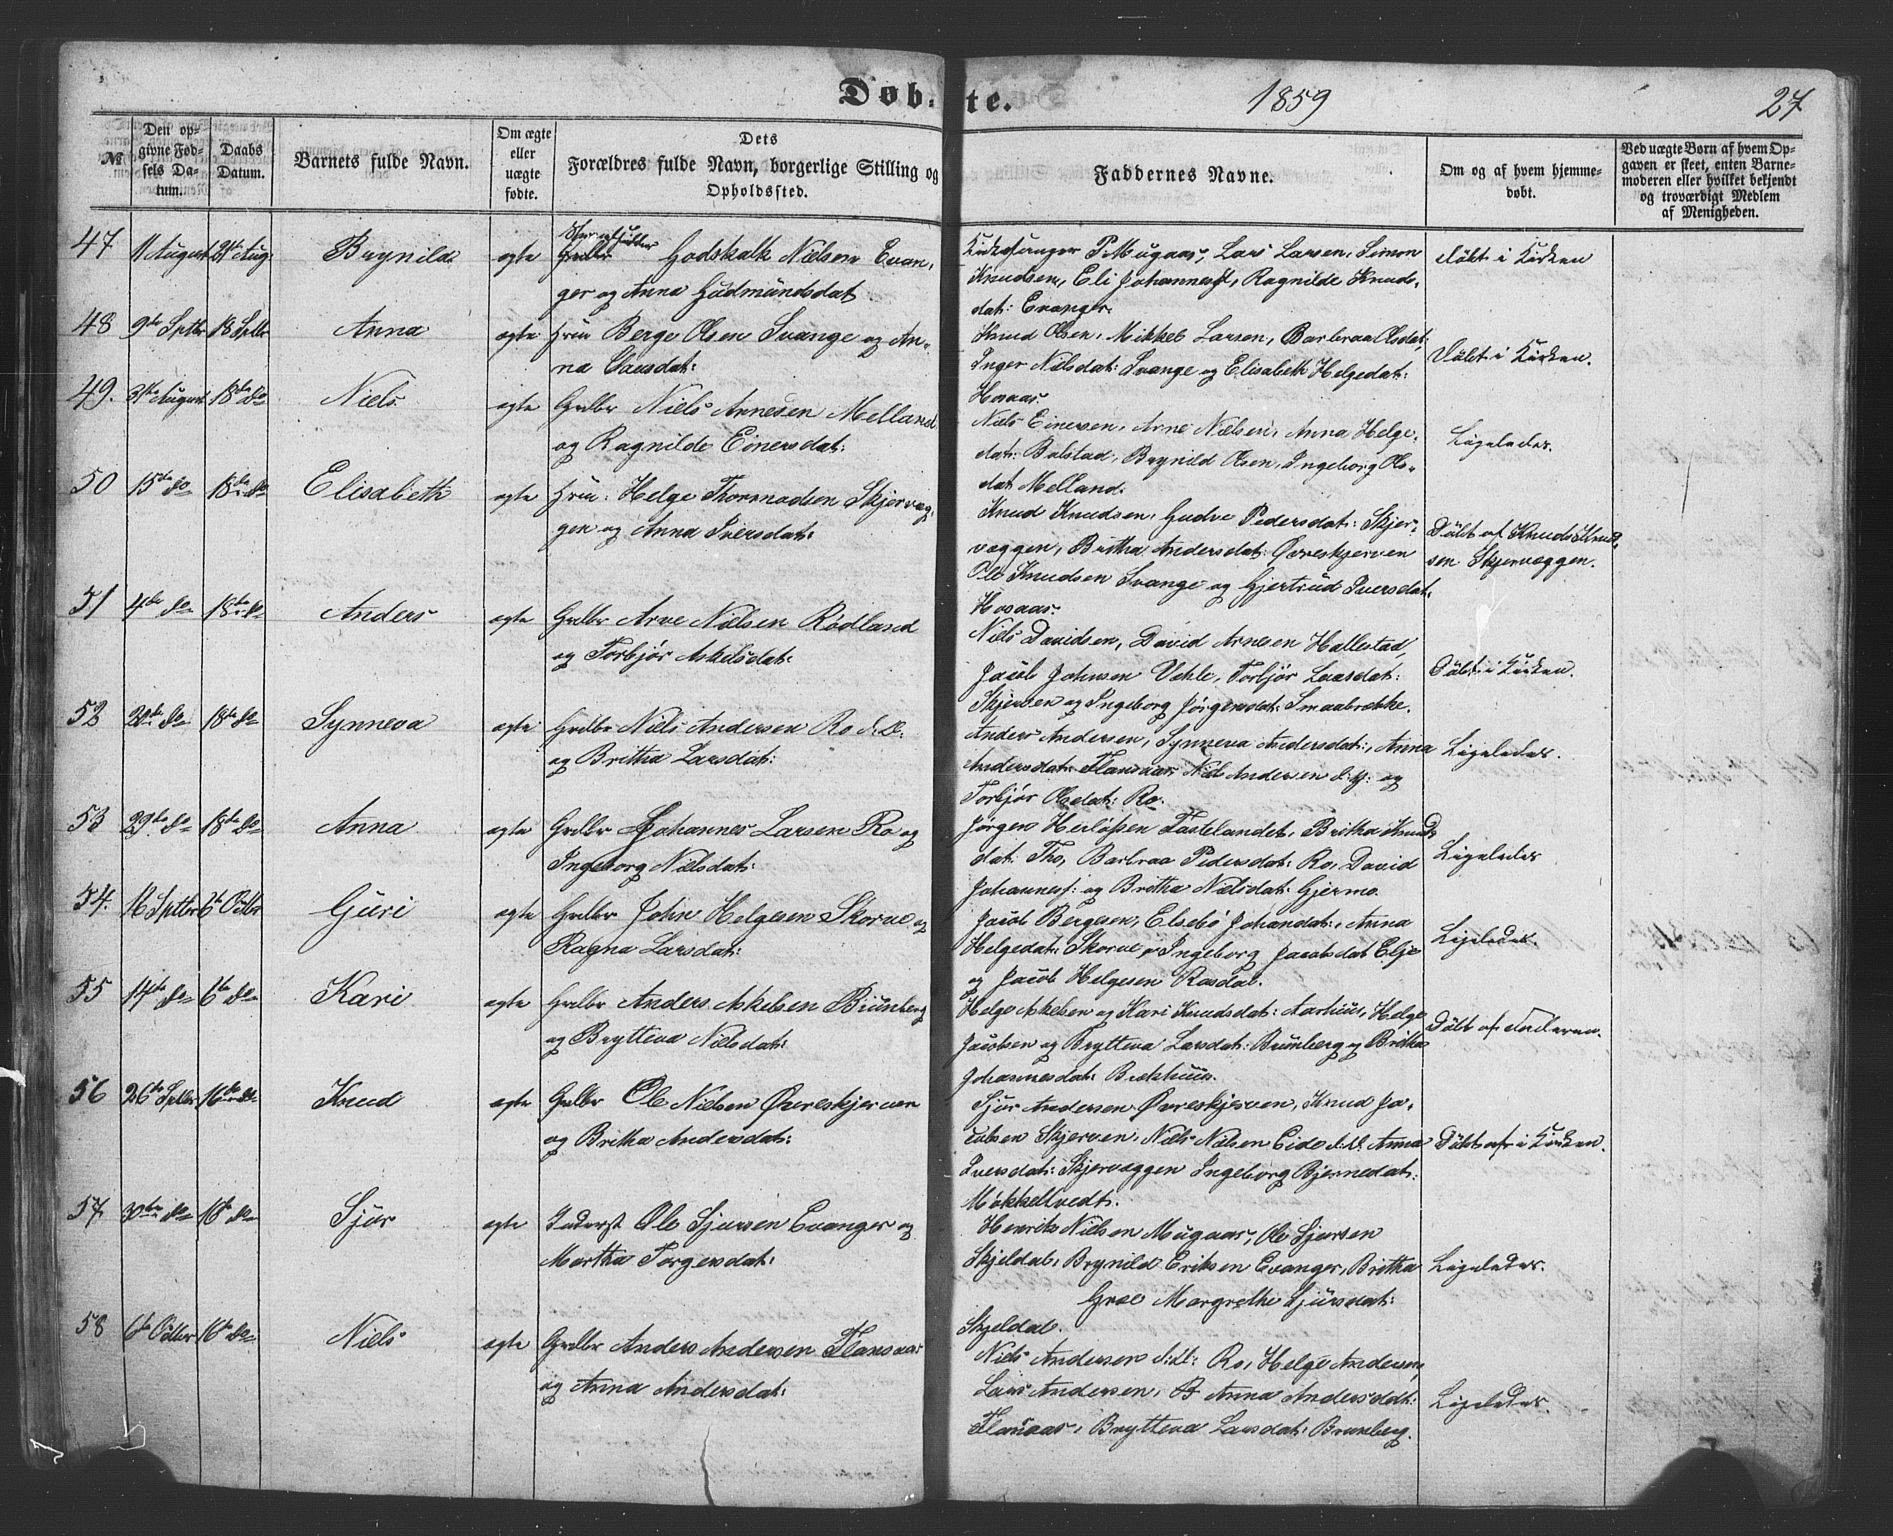 Døbte. 1859 27
№
Den opgivne Fødsels Datum.
Daabs Datum.
Barnets fulde Navn.
Om ægte eller uægte fødte.
Dets Forældres fulde Navn, borgerlige Stilling og Opholdssted.
Faddernes Navne.
Om og af hvem hjemmedøbt.
Ved uægte Børn af hvem Opgaven er skeet, enten Barnemoderen eller hvilket bekjendt og troværdigt Medlem af Menigheden.
47 11 August 21de Aug. Brynilde ægte Godskalk Nielsen Evan,
ger og Anna Gudmundsdat
Kirkesanger P. Mugaas, Lars Larsen, Simon
Knudsen, Eli Johannesd, Ragnilde Knuds-
dat: Evanger.
døbt i Kirken
48 9de Septbr 18 Septbr Anna ægte Hmd Berge Olsen Svange og An-
na Larsdat:
Knud Olsen, Mikkel Larsen, Barbraa Olsdat,
Inger Nielsdat: Svange og Elisabeth Helgedat:
Hosaas.
Døbt i Kirken.
49. August 18de do Niels ægte Grdbr Niels Arnesen Melland
og Ragnilde Einersdat:
Niels Einersen, Arne Nielsen, Anna Helge-
dat: Bolstad, Brynild Olsen, Ingeborg Ols-
dat Melland.
Ligeledes.
50 15de do 18de do Elisabeth ægte Hmd: Helge Thormodsen Skjervæg-
gen og Anna Iversdat:
Knud Knudsen, Gudve Pedersdat: Skjer-
væggen, Britha Andersdat: Øvreskjerven
Ole Knudsen Svange og Gjertrud Iversdat:
Hosaas.
Døbt af Knud Knud-
sen Skjervæggen.
51 4de do 18de do Anders ægte Grdbr Arne Nielsen Rødland
og Torbjør Askelsdat:
Niels Davidsen, David Arnesen Hallestad,
Jacob Johnsen Vehle, Torbjør Larsdat:
Skjerven og Ingeborg Jørgensdat: Smaabrække.
Døbt i Kirken.
52 2de do 18de do Synneva ægte Grdbr Niels Andersen Ro d:Æ:
og Britha Larsdat:
Anders Andersen, Synneva Andersdat:, Anna
Andersdat: Flansaas, Niels Andersen d:y: og
Torbjør Olsdat: Ro.
Ligeledes.
53 29de do 18de do Anna ægte Grdbr Johannes Larsen Ro og
Ingeborg Nielsdat:
Jørgen Herlofsen Fastelandet, Britha Knuds
dat: Tho, Barbraa Pedersdat: Ro, David
Johannesf: og Britha Nielsdat: Gjermo.
Ligeledes
54. 16 Septbr 6te Octbr Guri ægte Grdbr John Helgesen Skorve og
Ragna Larsdat:
Jacob Bergesen, Elsebø Johandat:, Anna
Helgedat: Skorve, Ingeborg Jacobsdat Elje
og Jacob Helgesen Rasdal.
Ligeledes.
55 17de do 6te do Kari ægte Grdbr Anders Askelsen Brunberg
og Brytteva Nielsdat:
Helge Askelsen og Kari Knudsdat: Aarhuus, Helge
Jacobsen og Brytteva Larsdat: Brunberg og Britha
Johannesdat: Brekhuus.
Døbt af Faderen.
56 26de Septbr 16de do Knud ægte Grdbr Ole Nielsen Øvreskjerven
og Britha Andersdat:
Sjur Andersen Øvreskjerven, Knud Ja-
cobsen Skjerven, Niels Nielsen Eide d:Æ: Anna
Iversdat: Skjervæggen Ingeborg Bjernedat:
Møkkeltvedt.
Døbt af i Kirken.
57 do 16de do Sjur ægte Inderst Ole Sjursen Evanger og
Martha Torgersdat:
Henrik Nielsen Mugaas, Ole Sjursen
Skjeldal, Brynild Eriksen Evanger, Britha
Groe Margrethe Sjursdat:
Skjeldal.
Ligeledes.
58 6te Octbr 16de do Niels ægte Grdbr Anders Andersen Flansaas
og Anna Andersdat:
Niels Andersen d:Æ: Ro, Helge Andersen,
Lars Andersen, B Anna Andersdat:
Flansaas, Brytteva Larsdat: Brunberg.
Ligeledes.